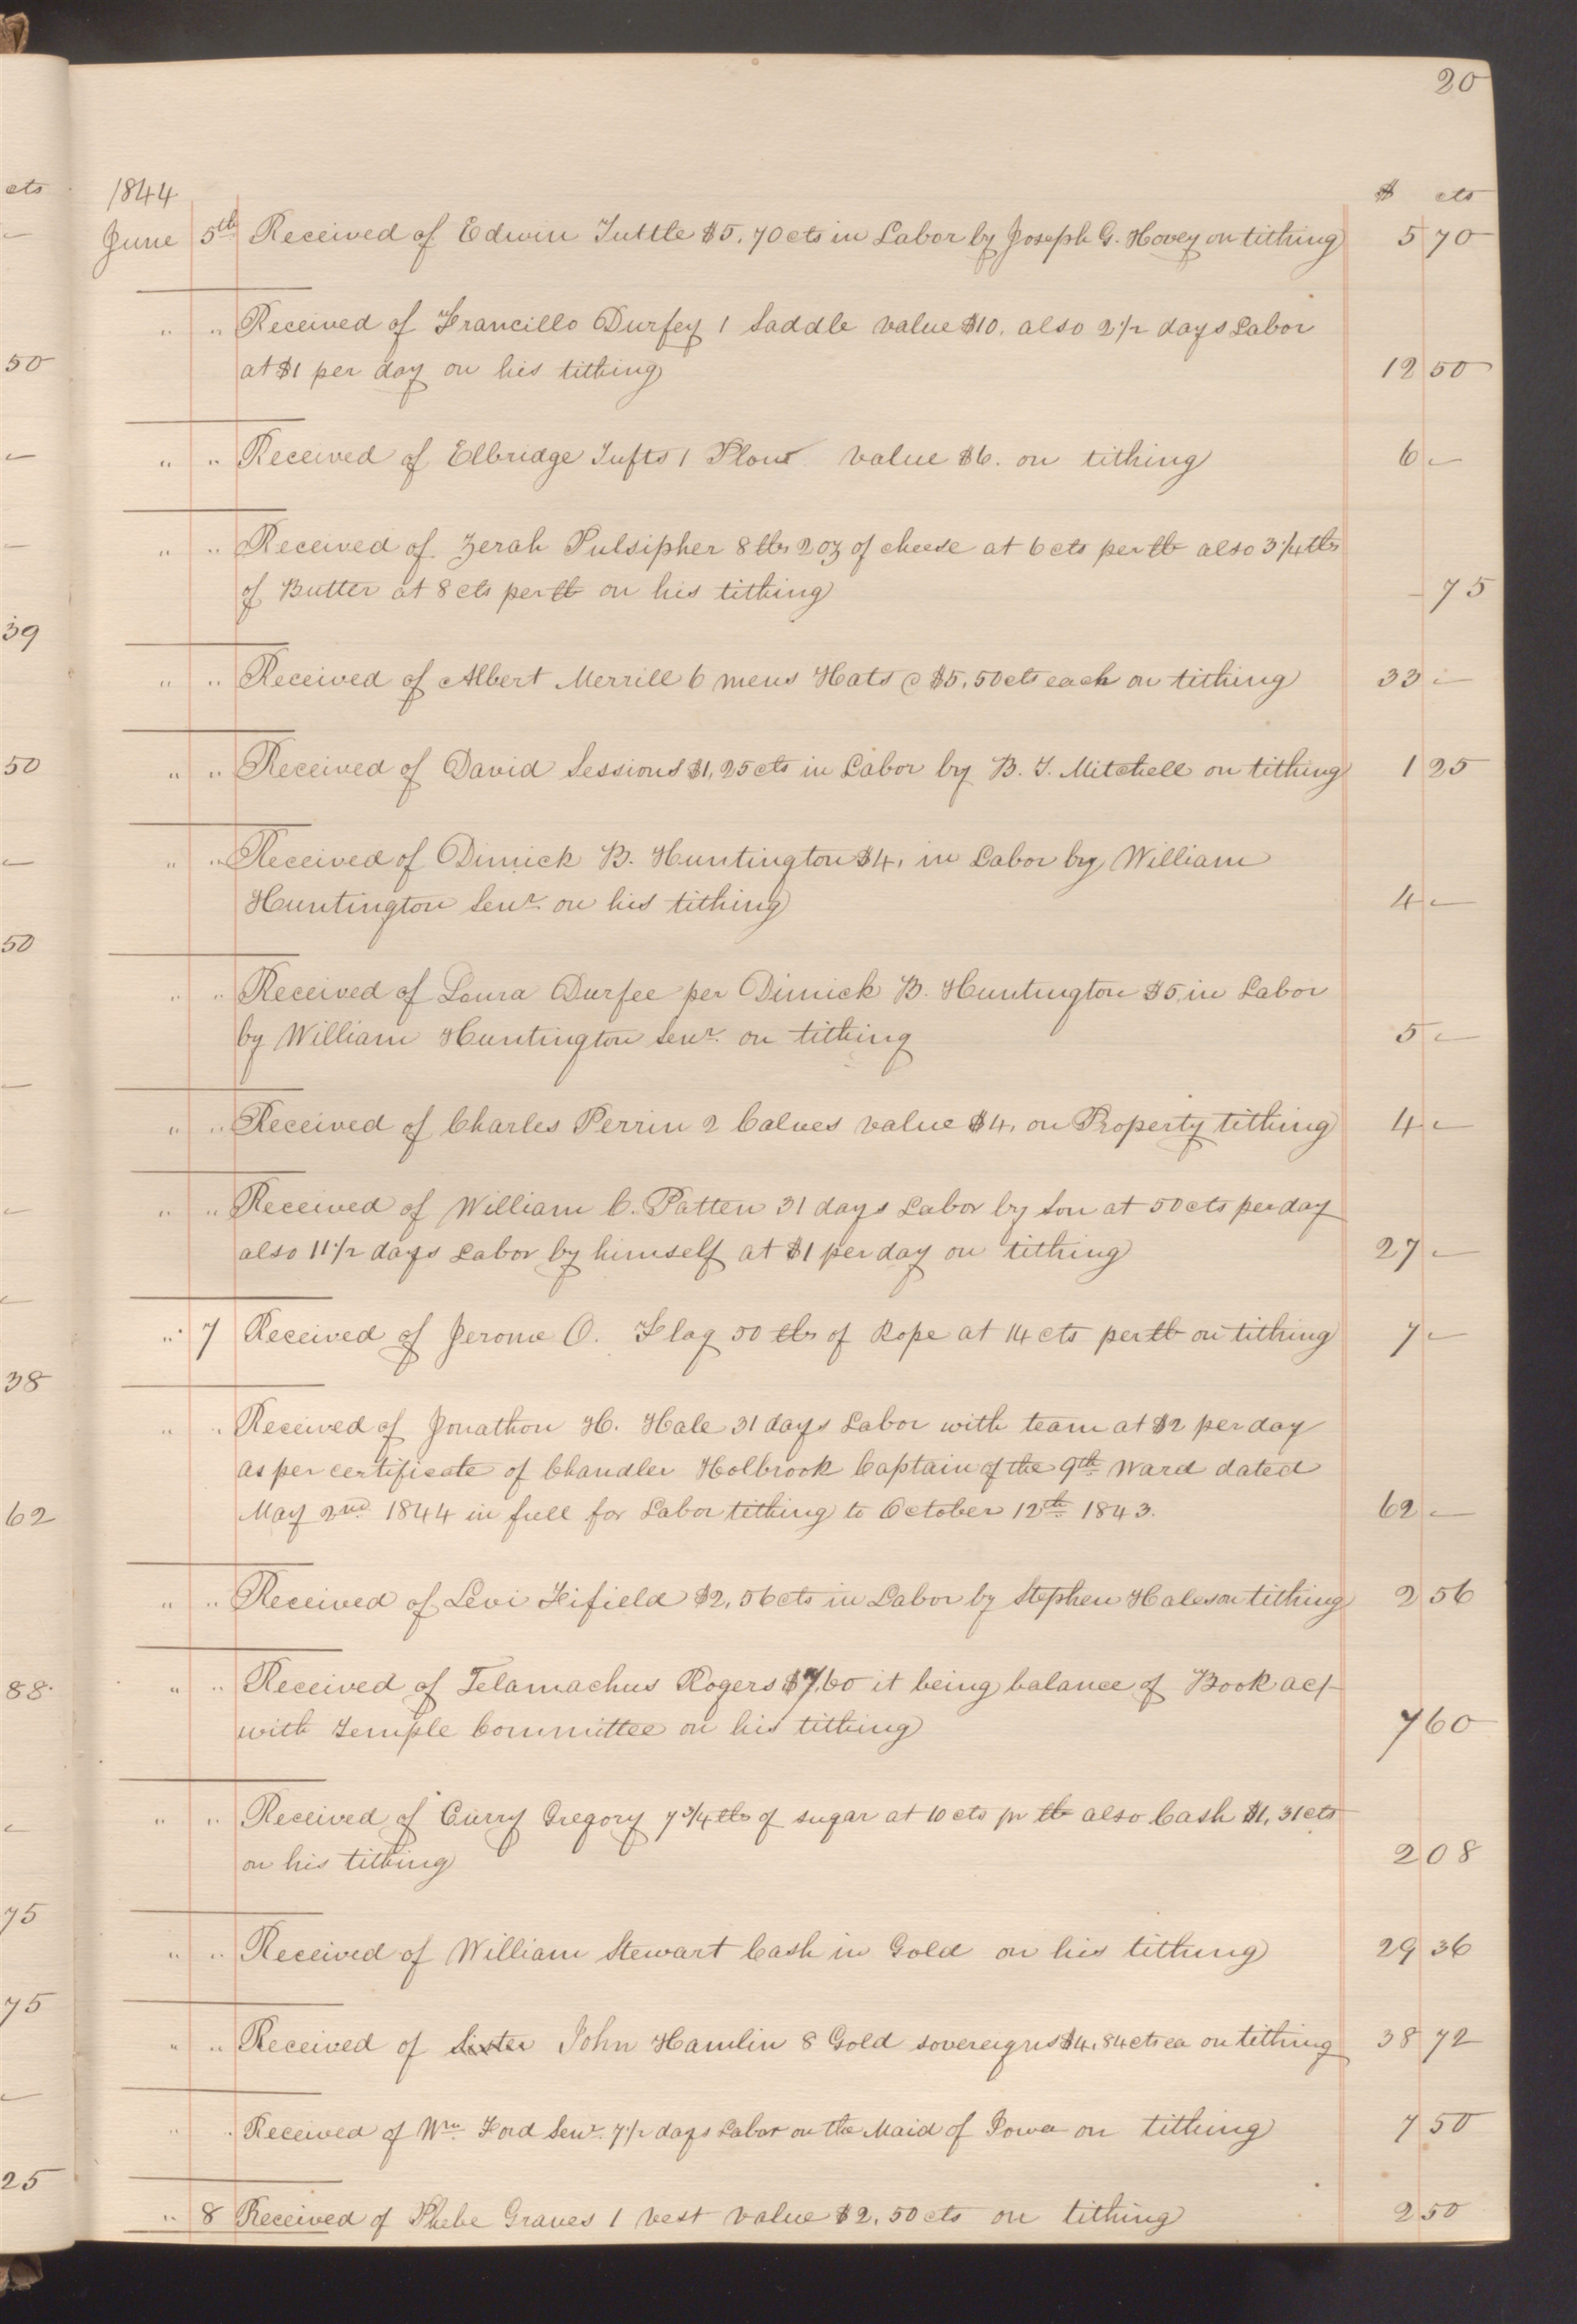 20
cts
1844 $ cts
— June 5th Received of Edwin Tuttle $5.70cts in Labor by Joseph G. Hovey on tithing 5 70
" " Received of Francillo Durfey 1 Saddle value $10. also 2 1/2 days Labor
50 at $1 per day on his tithing 12 50
— " " Received of Elbridge Tufts 1 Plow value $6. on tithing 6 —
— " " Received of Zerah Pulsipher 8 lbs 2 oz of cheese at 6 cts per lb also 3 1/4 lbs
of Butter at 8 cts per lb on his tithing — 75
39
" " Received of Albert Merrill 6 mens Hats @ $5,50cts each on tithing 33 —
50 " " Received of David Sessions $1,25cts in Labor by B. T. Mitchell on tithing 1 25
— " " Received of Dimick B. Huntington $4, in Labor by William
Huntington Senr. on his tithing 4 —
50
" " Received of Loura Durfee per Dimick B. Huntington $5, in Labor
by William Huntington Senr. on tithing 5 —
—
" " Received of Charles Perrin 2 Calves value $4, on Property tithing 4 —
— " " Received of William C. Patten 31 days Labor by Son at 50 cts per day
also 11 1/2 days Labor by himself at $1 per day on tithing 27 —
—
" 7 Received of Jerome O. Flag 50 lbs of Rope at 14 cts per lb on tithing 7 —
38
" " Received of Jonathon H. Hale 31 days Labor with team at $2 per day
as per certificate of Chandler Holbrook Captain of the 9th Ward dated
62 May 2nd 1844 in full for Labor tithing to October 12th 1843. 62 —
" " Received of Levi Fifield $2,56cts in Labor by Stephen Hales on tithing 2 56
88. " " Received of Telamachus Rogers $7,60 it being balance of Book act
with Temple Committee on his tithing 7 60
— " " Received of Curry Gregory 7 3/4 lbs of sugar at 10 cts pr lb also Cash $1,31cts
on his tithing 2 08
75
" " Received of William Stewart Cash in Gold on his tithing 29 36
75
" " Received of Sister John Hamlin 8 Gold sovereigns $4,84cts ea on tithing 38 72
—
" " Received of Wm. Ford Senr. 7 1/2 days Labor on the Maid of Iowa on tithing 7 50
25
" 8 Received of Phebe Graves 1 vest value $2,50cts on tithing 2 50